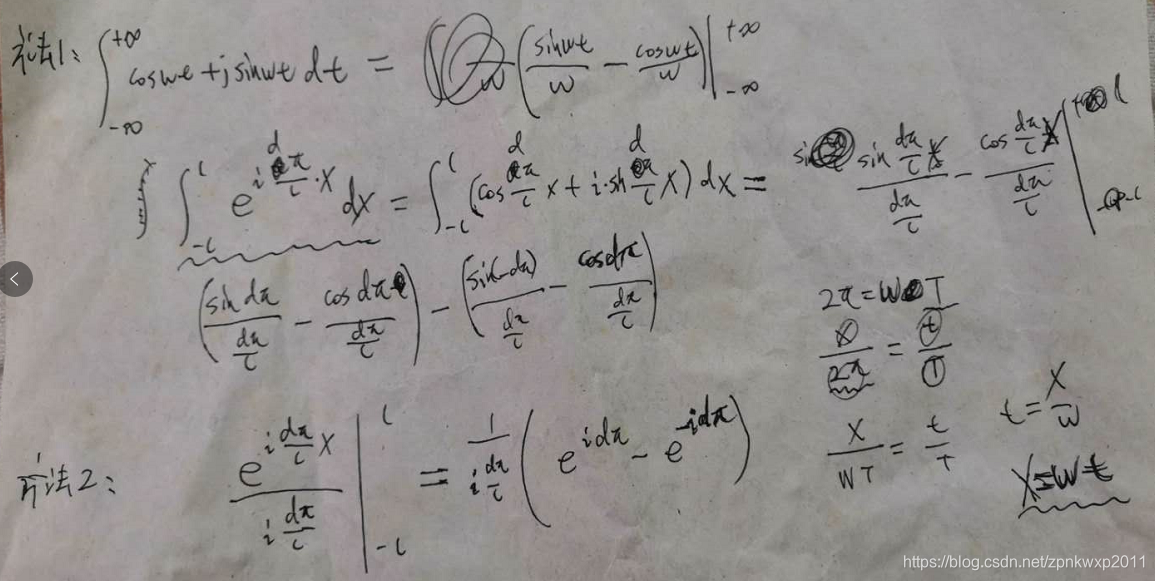 方法1: ∫_{-∞}^{+∞} cosωt + j sinωt dt = ( sinωt/ω - cosωt/ω ) |_{-∞}^{+∞}
∫_{-l}^{l} e^{i dπ/l · x} dx = ∫_{-l}^{l} (cos dπ/l x + i·sin dπ/l x) dx = sin dπ/l x / (dπ/l) - cos dπ/l x / (dπ/l) |_{-l}^{l}
( sin dπ / (dπ/l) - cos dπ / (dπ/l) ) - ( sin(-dπ) / (dπ/l) - cos dπ / (dπ/l) )
2π = W T
x/2π = t/T
x/WT = t/T
t = x/ω
x = w t
方法2: e^{i dπ/l x} / (i dπ/l) |_{-l}^{l} = 1/(i dπ/l) ( e^{i dπ} - e^{-i dπ} )
https://blog.csdn.net/zpnkwxp2011